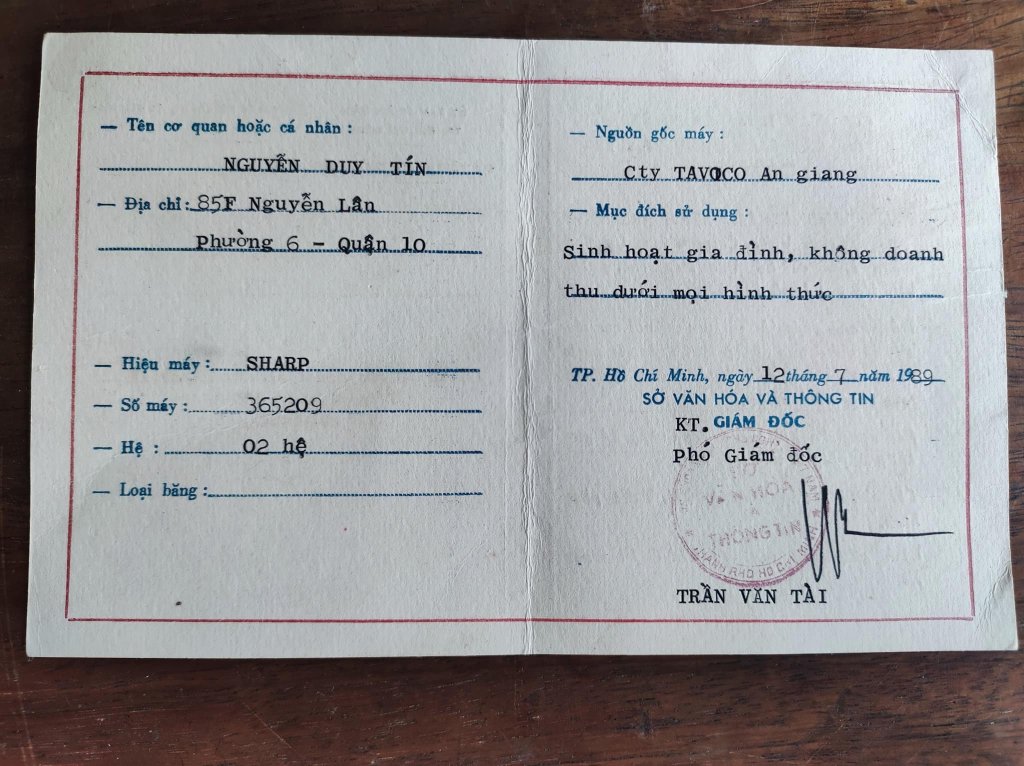 — Tên cơ quan hoặc cá nhân :
NGUYỄN DUY TÍN
— Địa chỉ : 85F Nguyễn Lân
Phường 6 - Quận 10
— Hiệu máy : SHARP
— Số máy : 365209
— Hệ : 02 hệ
— Loại băng :
— Nguồn gốc máy :
Cty TAVOCO An giang
— Mục đích sử dụng :
Sinh hoạt gia đình, không doanh
thu dưới mọi hình thức
TP. Hồ Chí Minh, ngày 12 tháng 7 năm 1989
SỞ VĂN HÓA VÀ THÔNG TIN
KT. GIÁM ĐỐC
Phó Giám đốc
VĂN HÓA
THÔNG TIN
THÀNH PHỐ HỒ CHÍ MINH
TRẦN VĂN TÀI